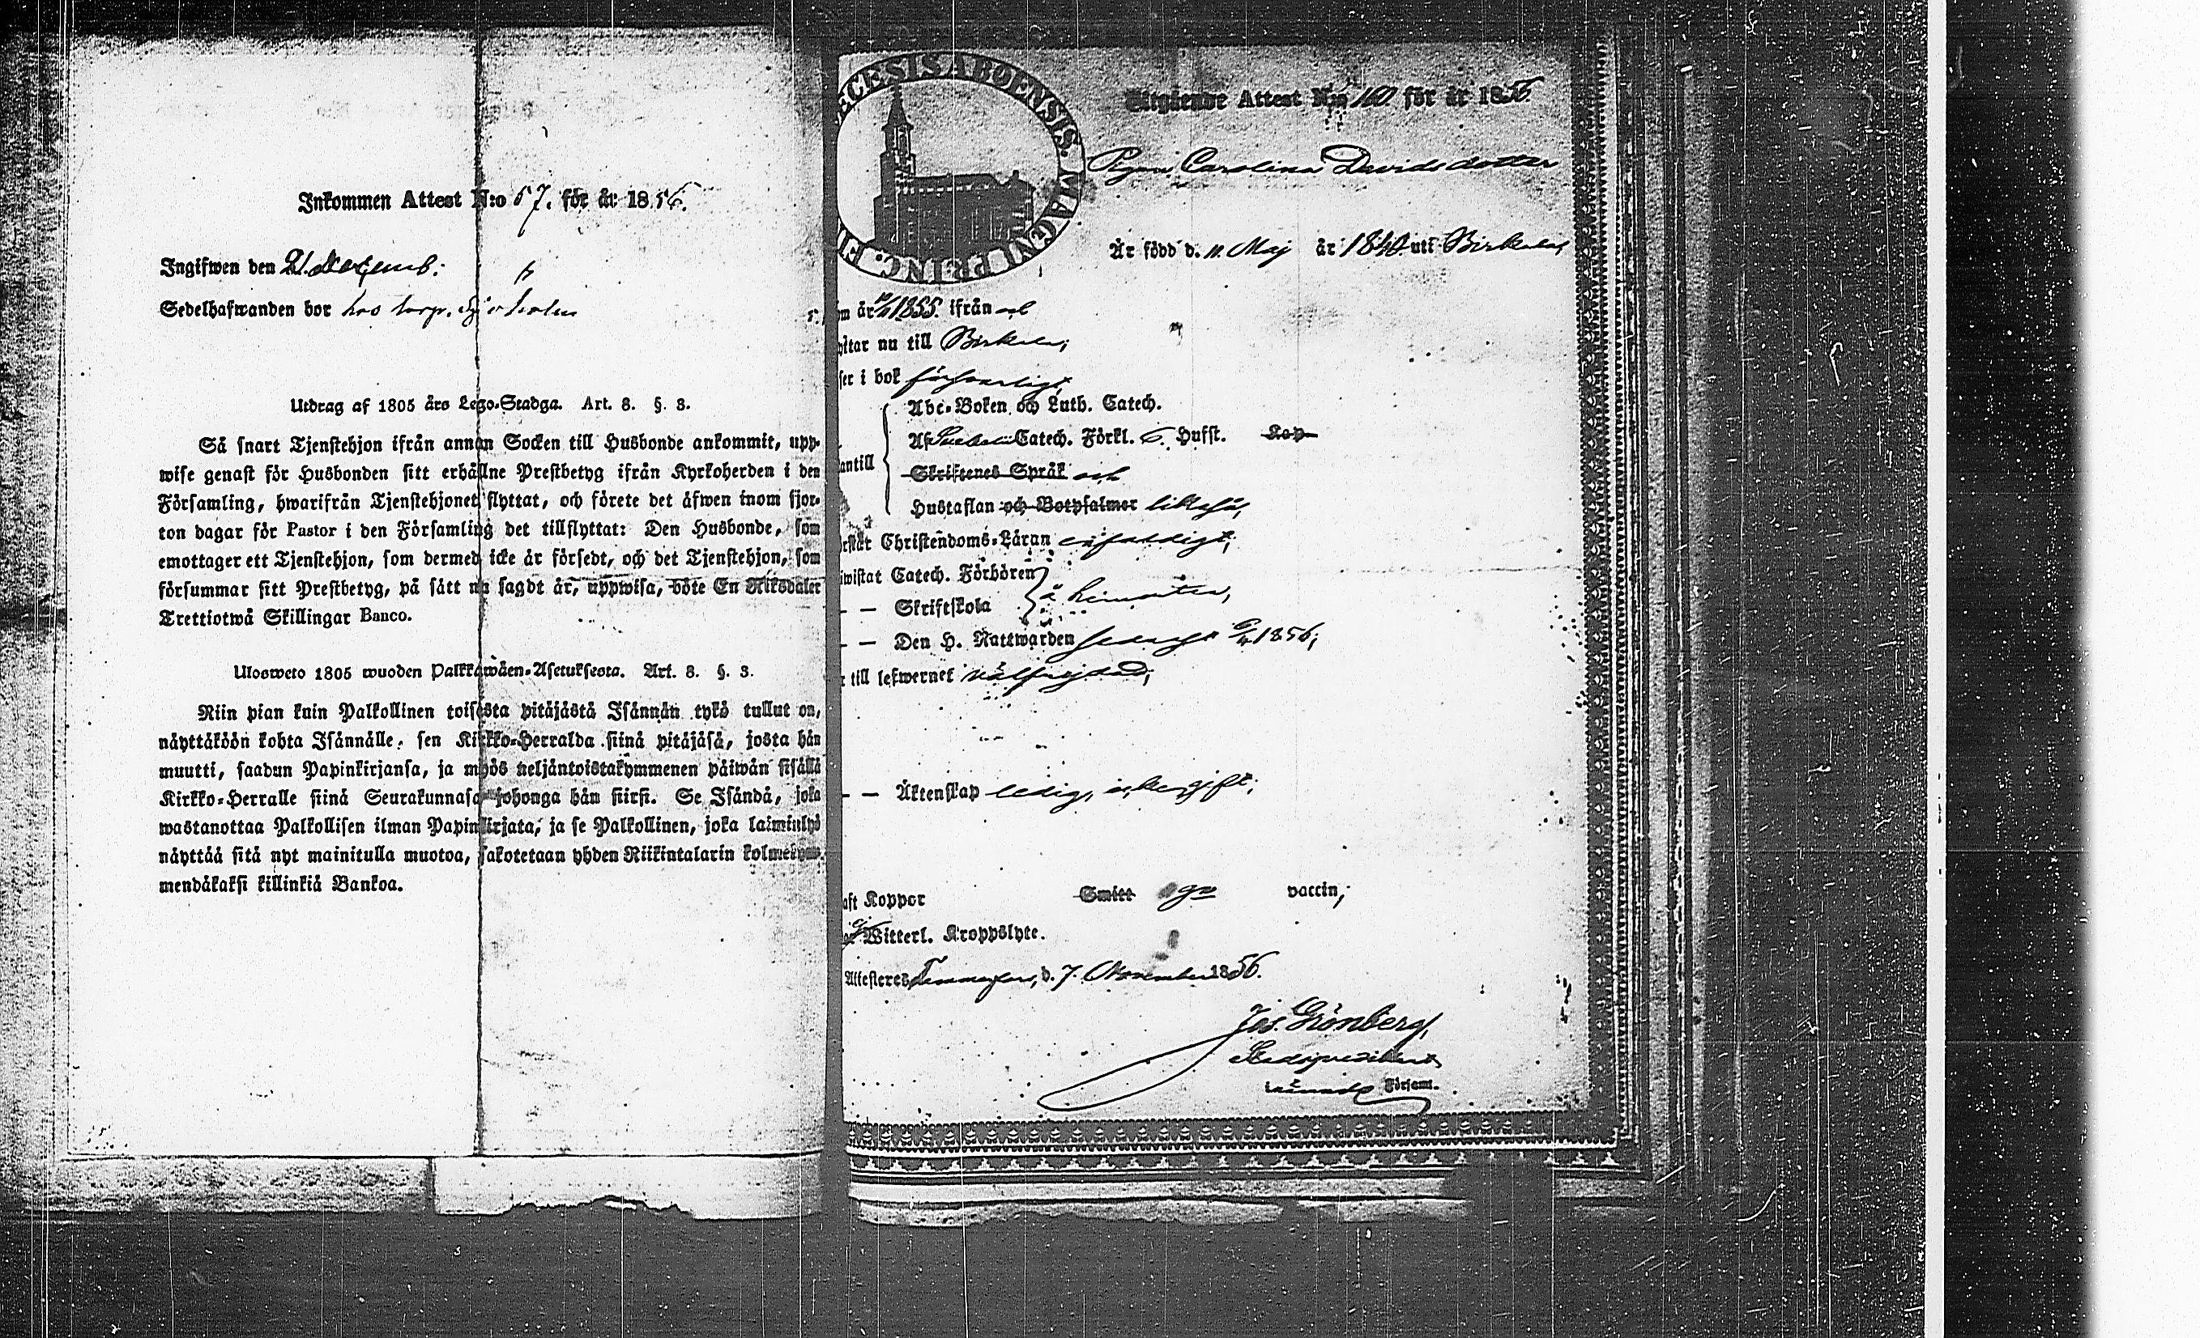 Inkommen Attest N:o 57. för år 1856.
Ingifwen den 21 Decemb.
Sedelhafwanden bor hos torp.
Utdrag af 1805 års Lego-Stadga. Art. 8. §. 3.
Så snart Tjenstehjon ifrån annan Socken till Husbonde ankommit, upp-
wise genast för Husbonden sitt erhållne Prestbetyg ifrån Kyrkoherden i den
Församling, hwarifrån Tjenstehjonet flyttat, och förete det äfwen inom fjor-
ton dagar för Pastor i den Församling det tillflyttat: Den Husbonde, som
emottager ett Tjenstehjon, som dermed icke är försedt, och det Tjenstehjon, som
försummar sitt Prestbetyg, på sätt nu sagdt är, uppwisa, böte En Riksdaler
Trettiotwå Skillingar Banco.
Ulosweto 1805 wuoden Palkkawäen-Asetuksesta. Art. 8. §. 3.
Niin pian kuin Palkollinen toisesta pitäjästä Isännän tykö tullut on,
näyttäköön kohta Isännälle, sen Kirkko-Herralda siinä pitäjäsä, josta hän
muutti, saadun Papinkirjansa, ja myös neljäntoistakymmenen päiwän sisällä
Kirkko-Herralle siinä Seurakunnasa johonga hän siirsi. Se Isändä, joka
wastanottaa Palkollisen ilman Papinkirjata, ja se Palkollinen, joka laiminlyö
näyttää sitä nyt mainitulla muotoa, sakotetaan yhden Riikintalarin kolmekym-
mendäkaksi killinkiä Bankoa.
ECESIS ABOENSIS. MAGNI PRINC. FI
Utgående Attest N:o 160 för år 1856.
Pigan Carolina Davidsdotter
Är född d. 11. Maj år 1840 uti Birkala,
om år 1855. ifrån
yttar nu till Birkala;
ser i bok försvarligt,
Abc-Boken och Luth. Catech.
Af Catech. Förkl. 6. Hufst. Kap
antill
Skriftenes Språk och
Hustaflan och Botpsalmer likaså,
rstår Christendoms-Läran enfaldigt;
iwistat Catech. Förhören
— Skriftskola å hemorten,
— — Den H. Nattwarden senast 1856;
r till lefwernet välfrejdad;
— — Äktenskap ledig, obesgift;
aft Koppor Smitt ge vaccin;
Witterl. Kroppslyte.
Attesteres Tammerfors, d. 7. November 1856.
Jos. Grönberg,
Församl.